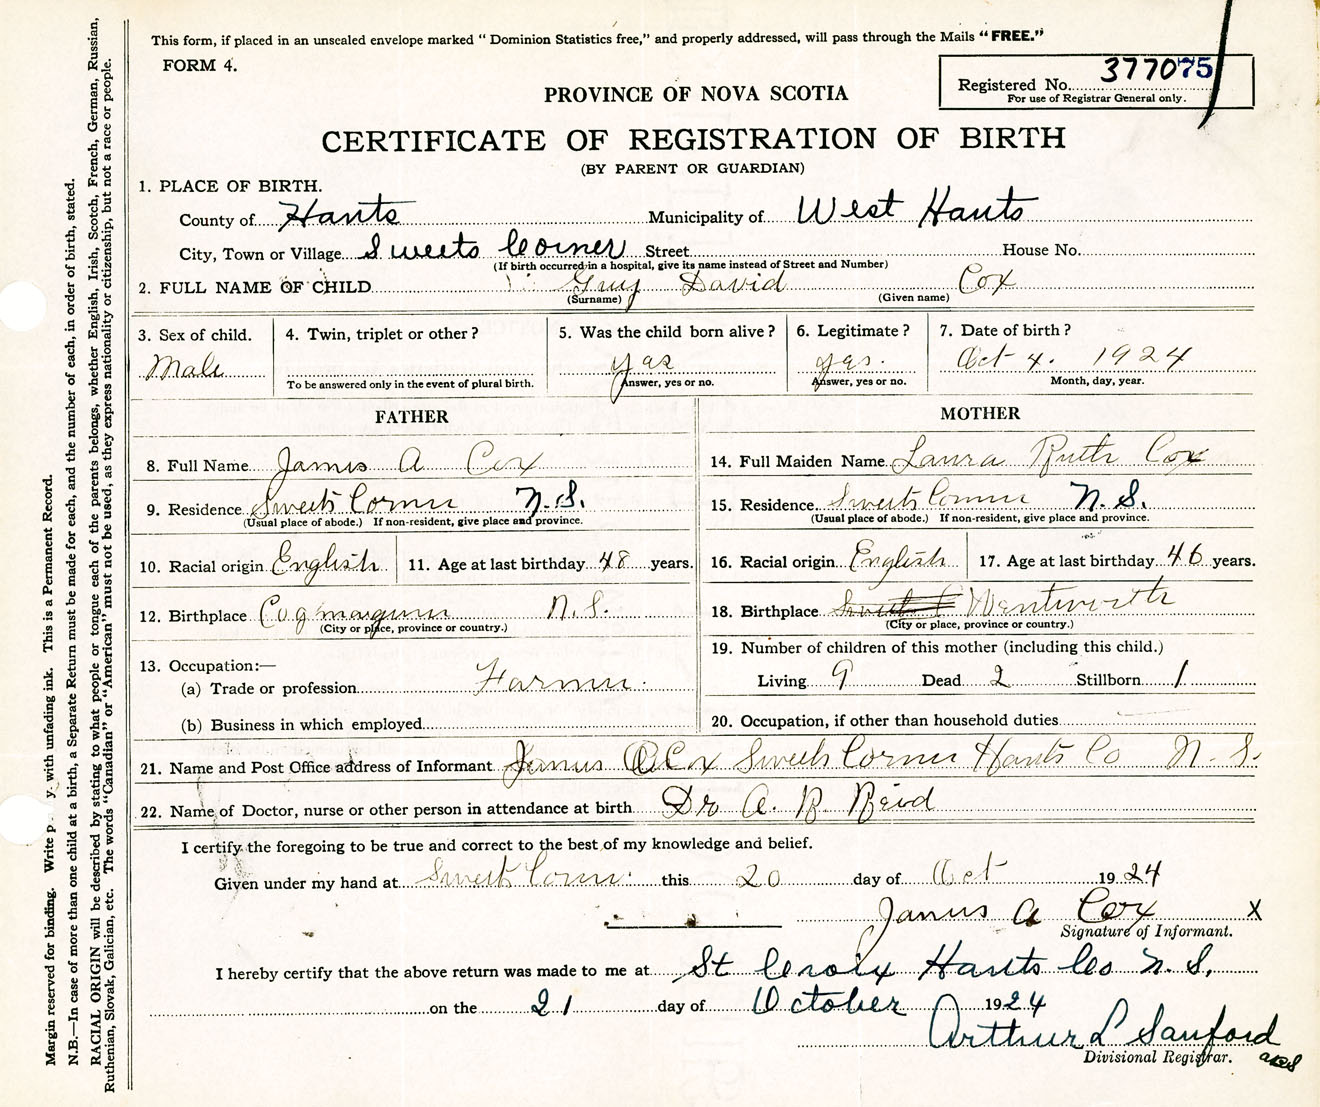 This form, if placed in an unsealed envelope marked "Dominion Statistics free," and properly addressed, will pass through the Mails "FREE."
FORM 4.
Registered No. 377075
For use of Registrar General only.
PROVINCE OF NOVA SCOTIA
CERTIFICATE OF REGISTRATION OF BIRTH
(BY PARENT OR GUARDIAN)
1. PLACE OF BIRTH.
County of Hants Municipality of West Hants
City, Town or Village Sweets Corner Street House No.
(If birth occurred in a hospital, give its name instead of Street and Number)
2. FULL NAME OF CHILD Guy David Cox
(Surname) (Given name)
3. Sex of child. 4. Twin, triplet or other? 5. Was the child born alive? 6. Legitimate? 7. Date of birth?
Male yas yas. Oct 4. 1924
To be answered only in the event of plural birth. Answer, yes or no. Answer, yes or no. Month, day, year.
FATHER MOTHER
8. Full Name James A Cox
14. Full Maiden Name Laura Ruth Cox
9. Residence Sweets Corner N.S.
(Usual place of abode.) If non-resident, give place and province.
15. Residence Sweets Corner N.S.
(Usual place of abode.) If non-resident, give place and province.
10. Racial origin English 11. Age at last birthday 48 years.
16. Racial origin English 17. Age at last birthday 46 years.
12. Birthplace N.S.
(City or place, province or country.)
18. Birthplace Wentworth
(City or place, province or country.)
13. Occupation:—
(a) Trade or profession Farmer.
(b) Business in which employed
19. Number of children of this mother (including this child.)
Living 9 Dead 2 Stillborn 1
20. Occupation, if other than household duties
21. Name and Post Office address of Informant James A Cox Sweets Corner Hants Co N.S.
22. Name of Doctor, nurse or other person in attendance at birth Dr A. R Reid
I certify the foregoing to be true and correct to the best of my knowledge and belief.
Given under my hand at Sweets Corner this 20 day of Oct 1924
James A Cox X
Signature of Informant.
I hereby certify that the above return was made to me at St Croix Hants Co N.S.
on the 21 day of October 1924
Arthur L Sanford
Divisional Registrar.
Margin reserved for binding. Write with unfading ink. This is a Permanent Record.
N.B.—In case of more than one child at a birth, a Separate Return must be made for each, and the number of each, in order of birth, stated.
RACIAL ORIGIN will be described by stating to what people or tongue each of the parents belongs, whether English, Irish, Scotch, French, German, Russian,
Ruthenian, Slovak, Galician, etc. The words "Canadian" or "American" must not be used, as they express nationality or citizenship, but not a race or people.